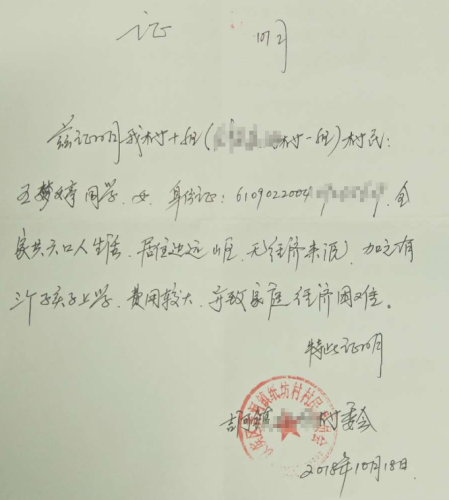 证 明
兹证明我村十组(村一组)村民:
王梦婷同学,女,身份证:6109022004,全
家共六口人生活,居住边远山区,无经济来源,加之有
三个孩子上学,费用较大,导致家庭经济困难。
特此证明
吉河镇村委会
镇纸坊村村民委员会
2018年10月18日